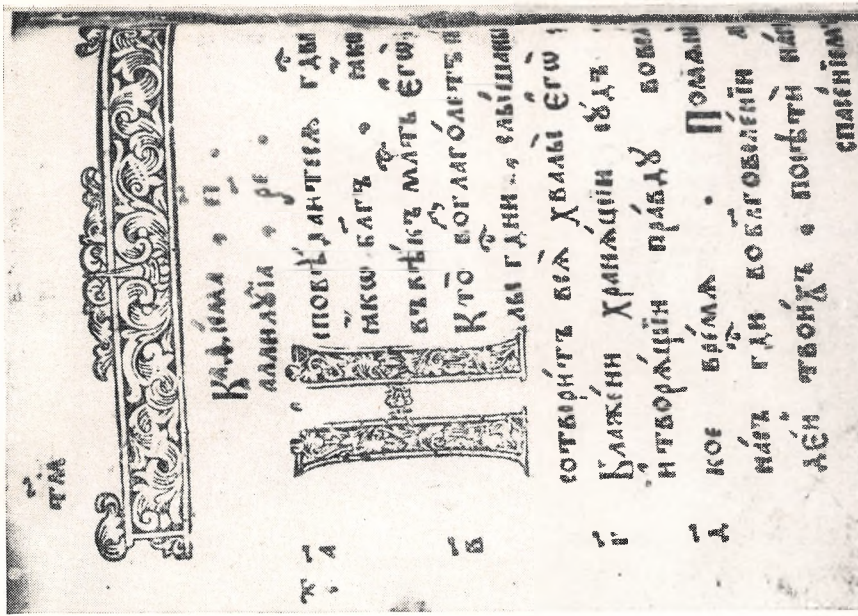 т҃ла
Каѳи́зма , е҃і .
аллилꙋ́їа , р҃е .
т҃ а҃ Исповѣ́даитесѧ гд҇ви
ꙗ҆́кѡ бл҃гъ . ꙗ҆́кѡ
въ вѣ́къ мл҇ть є҆гѡ̀
в҃ Кто̀ возглаго́летъ си
лы гд҇ни , слы́шаны
сотвори́тъ всѧ̀ хвалы̀ є҆гѡ̀ ,
г҃ Блаже́ни хранѧ́щїи сꙋ́дъ
и҆ творѧ́щїи пра́вдꙋ во всѧ
д҃ кое вре́мѧ . Помѧни
на́съ гд҇и во бл҃говоле́нїи
де́и твои́хъ . посѣти на́
спасе́нїемъ